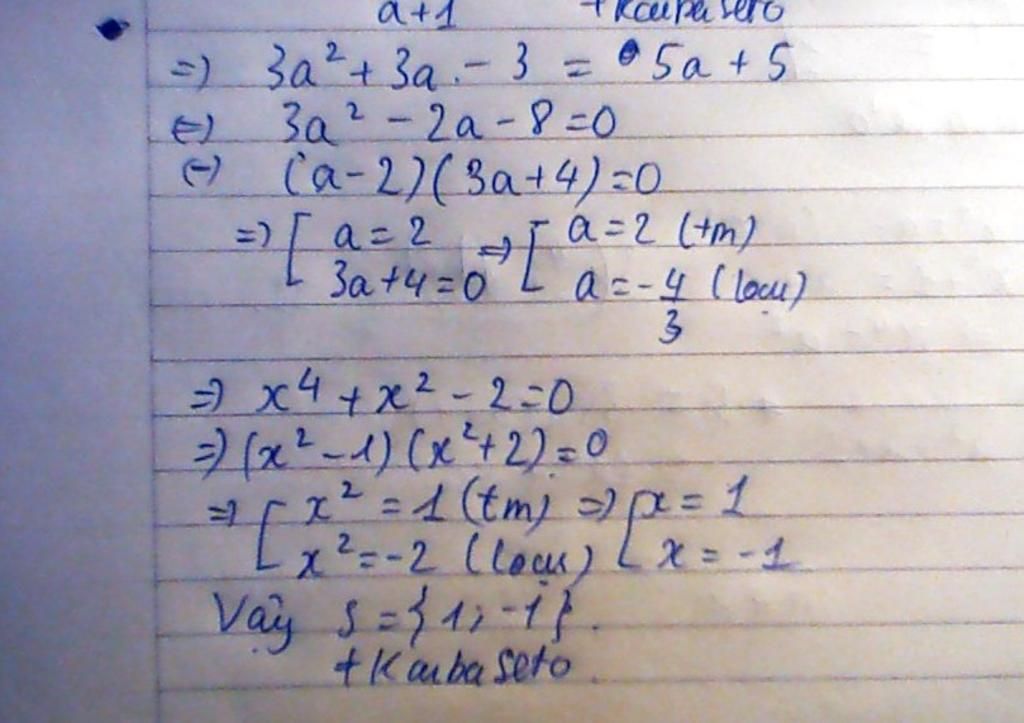 a+1 +Kaibaseto
=) 3a² + 3a - 3 = 5a + 5
(=) 3a² - 2a - 8 = 0
(=) (a-2)(3a+4)=0
=) [ a = 2 =) [ a = 2 (tm)
3a+4=0 a = -4/3 (loại)
=) x⁴ + x² - 2 = 0
=) (x² - 1)(x² + 2) = 0
=) [ x² = 1 (tm) =) [ x = 1
x² = -2 (loại) x = -1
Vậy S = {1; -1}.
+Kaibaseto